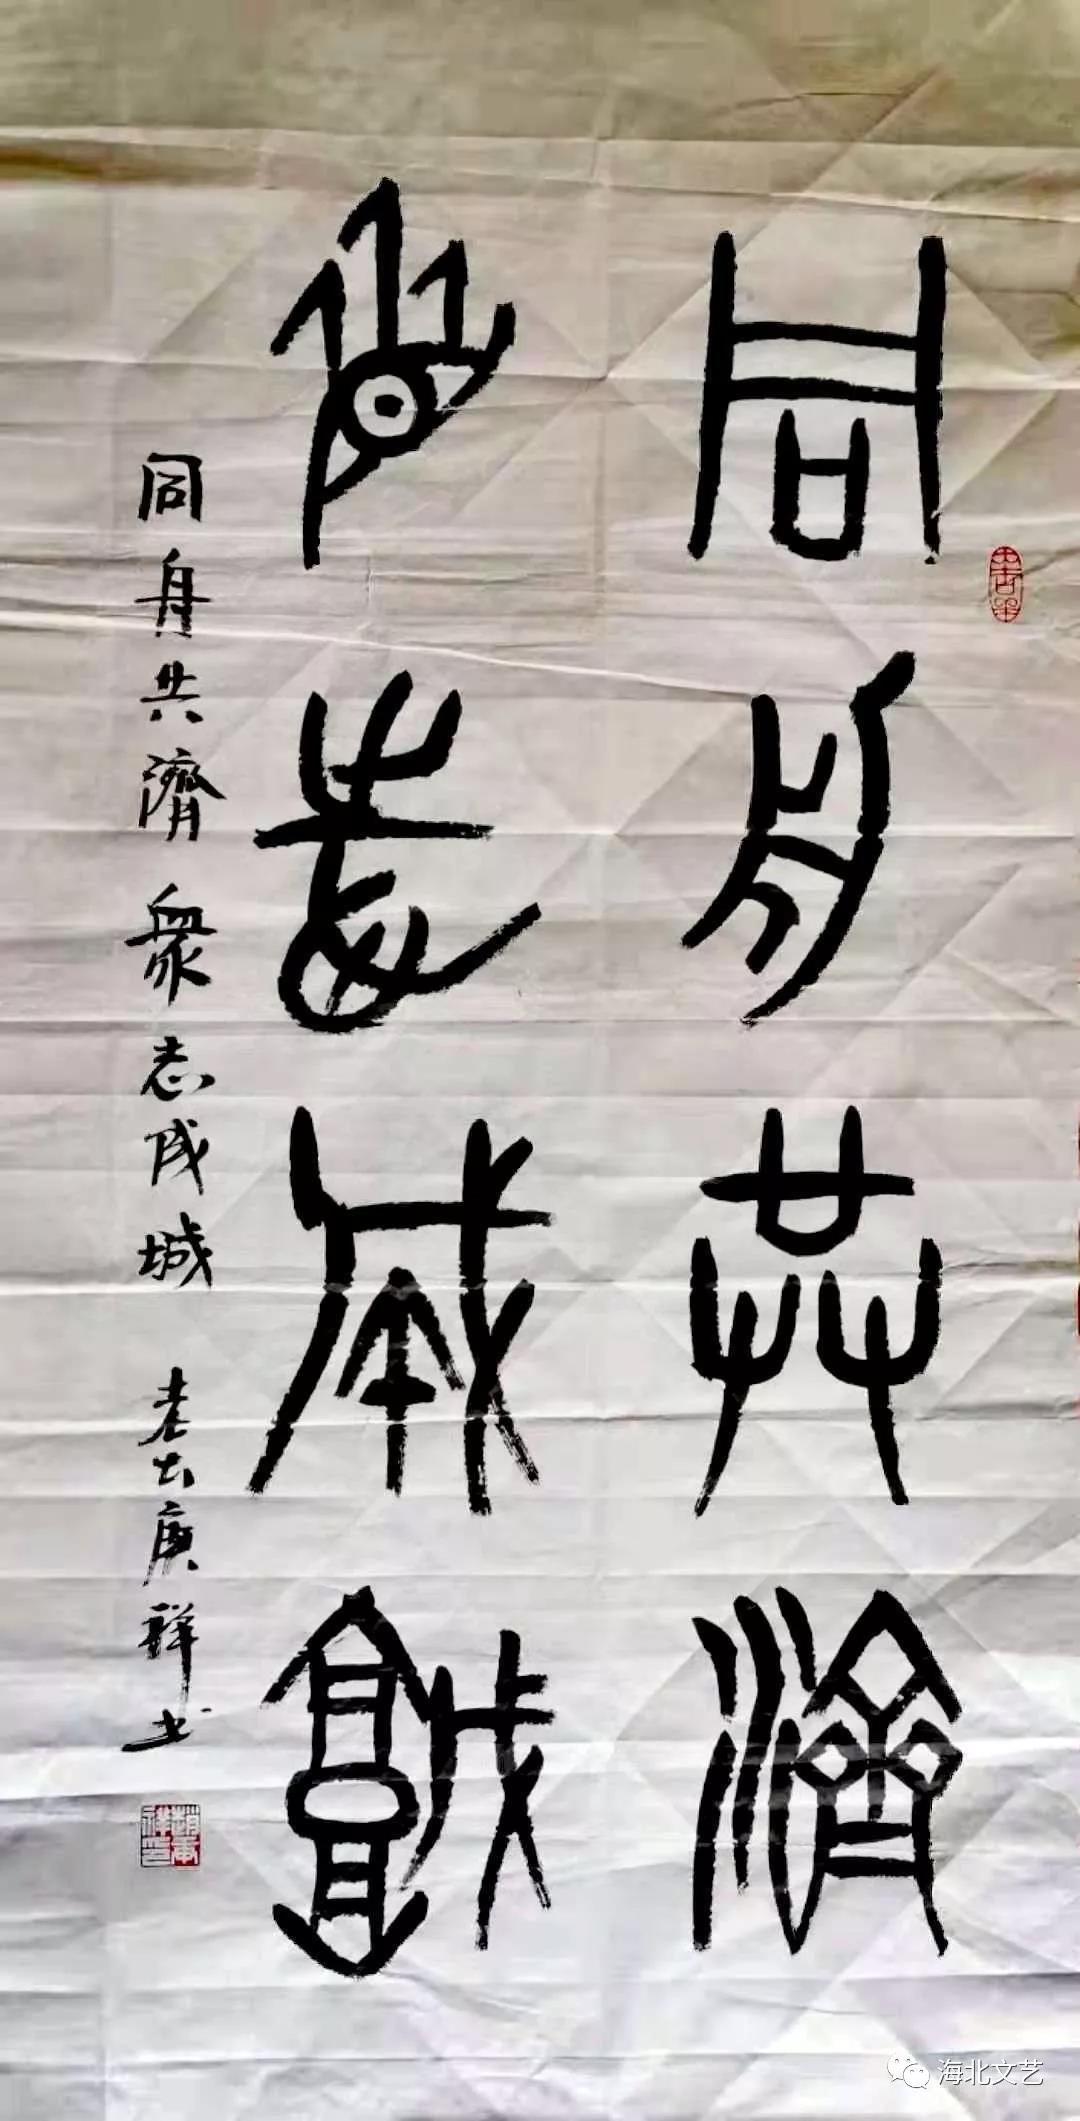 同舟共濟
衆志成城
同舟共濟衆志成城
庚祥书
海北文艺